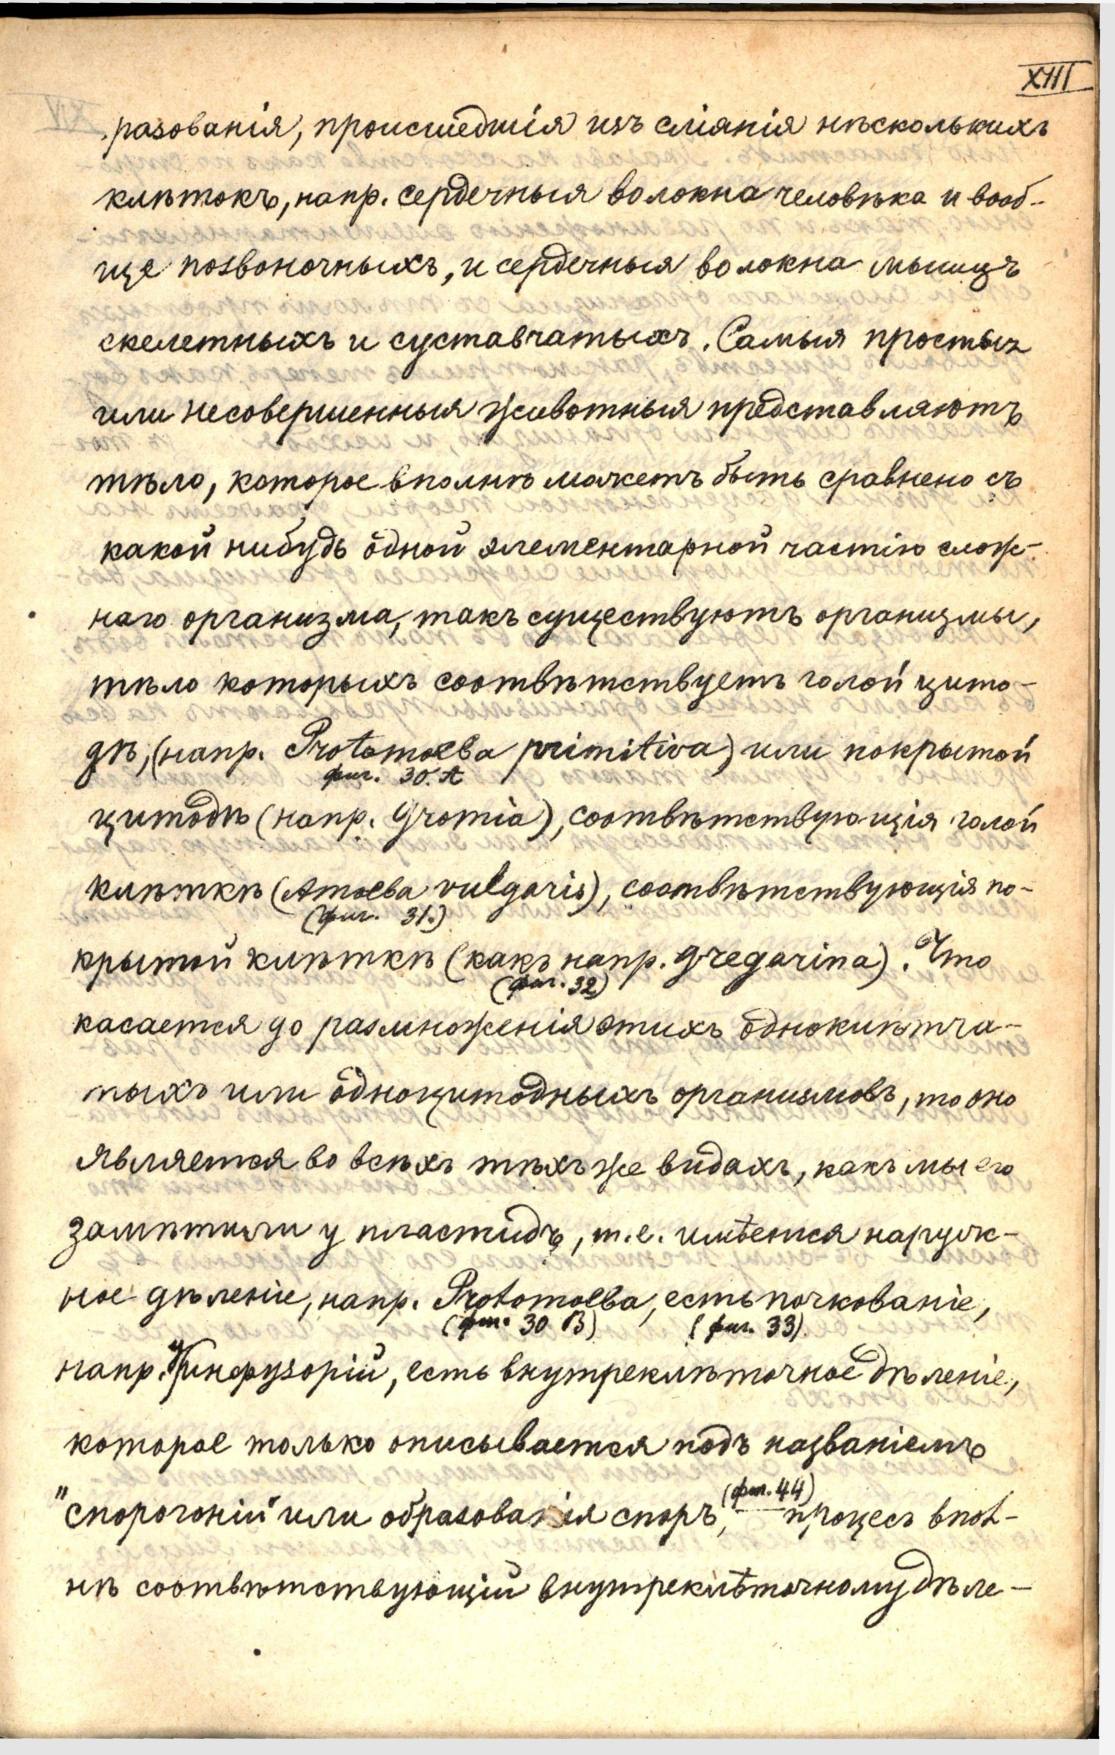 XIII
разованія, происшедшія изъ сліянія нѣсколькихъ
клѣтокъ, напр. сердечныя волокна человѣка и вооб-
ще позвоночныхъ, и сердечныя волокна мышцъ
скелетныхъ и суставчатыхъ. Самыя простыя
или несовершенныя животныя представляютъ
тѣло, которое вполнѣ можетъ быть сравнено съ
какой нибудь одной элементарной частію слож-
наго организма, такъ существуютъ организмы,
тѣло которыхъ соотвѣтствуетъ голой цито-
дѣ, (напр. Protomoeba primitiva) или покрытой
фиг. 30. A
цитодѣ (напр. Gromia), соотвѣтствующія голой
клѣткѣ (Amoeba vulgaris), соотвѣтствующія по-
(фиг. 31.)
крытой клѣткѣ (какъ напр. gregarina). Что
(фиг. 32)
касается до размноженія этихъ одноклѣтча-
тыхъ или одноцитодныхъ организмовъ, то оно
является во всѣхъ тѣхъ же видахъ, какъ мы его
замѣтили у пластидъ, т.е. имѣется наруж-
ное дѣленіе, напр. Protomoeba, есть почкованіе,
(фиг. 30 B) (фиг. 33).
напр. у инфузорій, есть внутреклѣточное дѣленіе,
которое только описывается подъ названіемъ
(фиг. 44)
"спорогоніи" или образованія споръ, процесъ впол-
нѣ соотвѣтствующій внутреклѣточному дѣле-